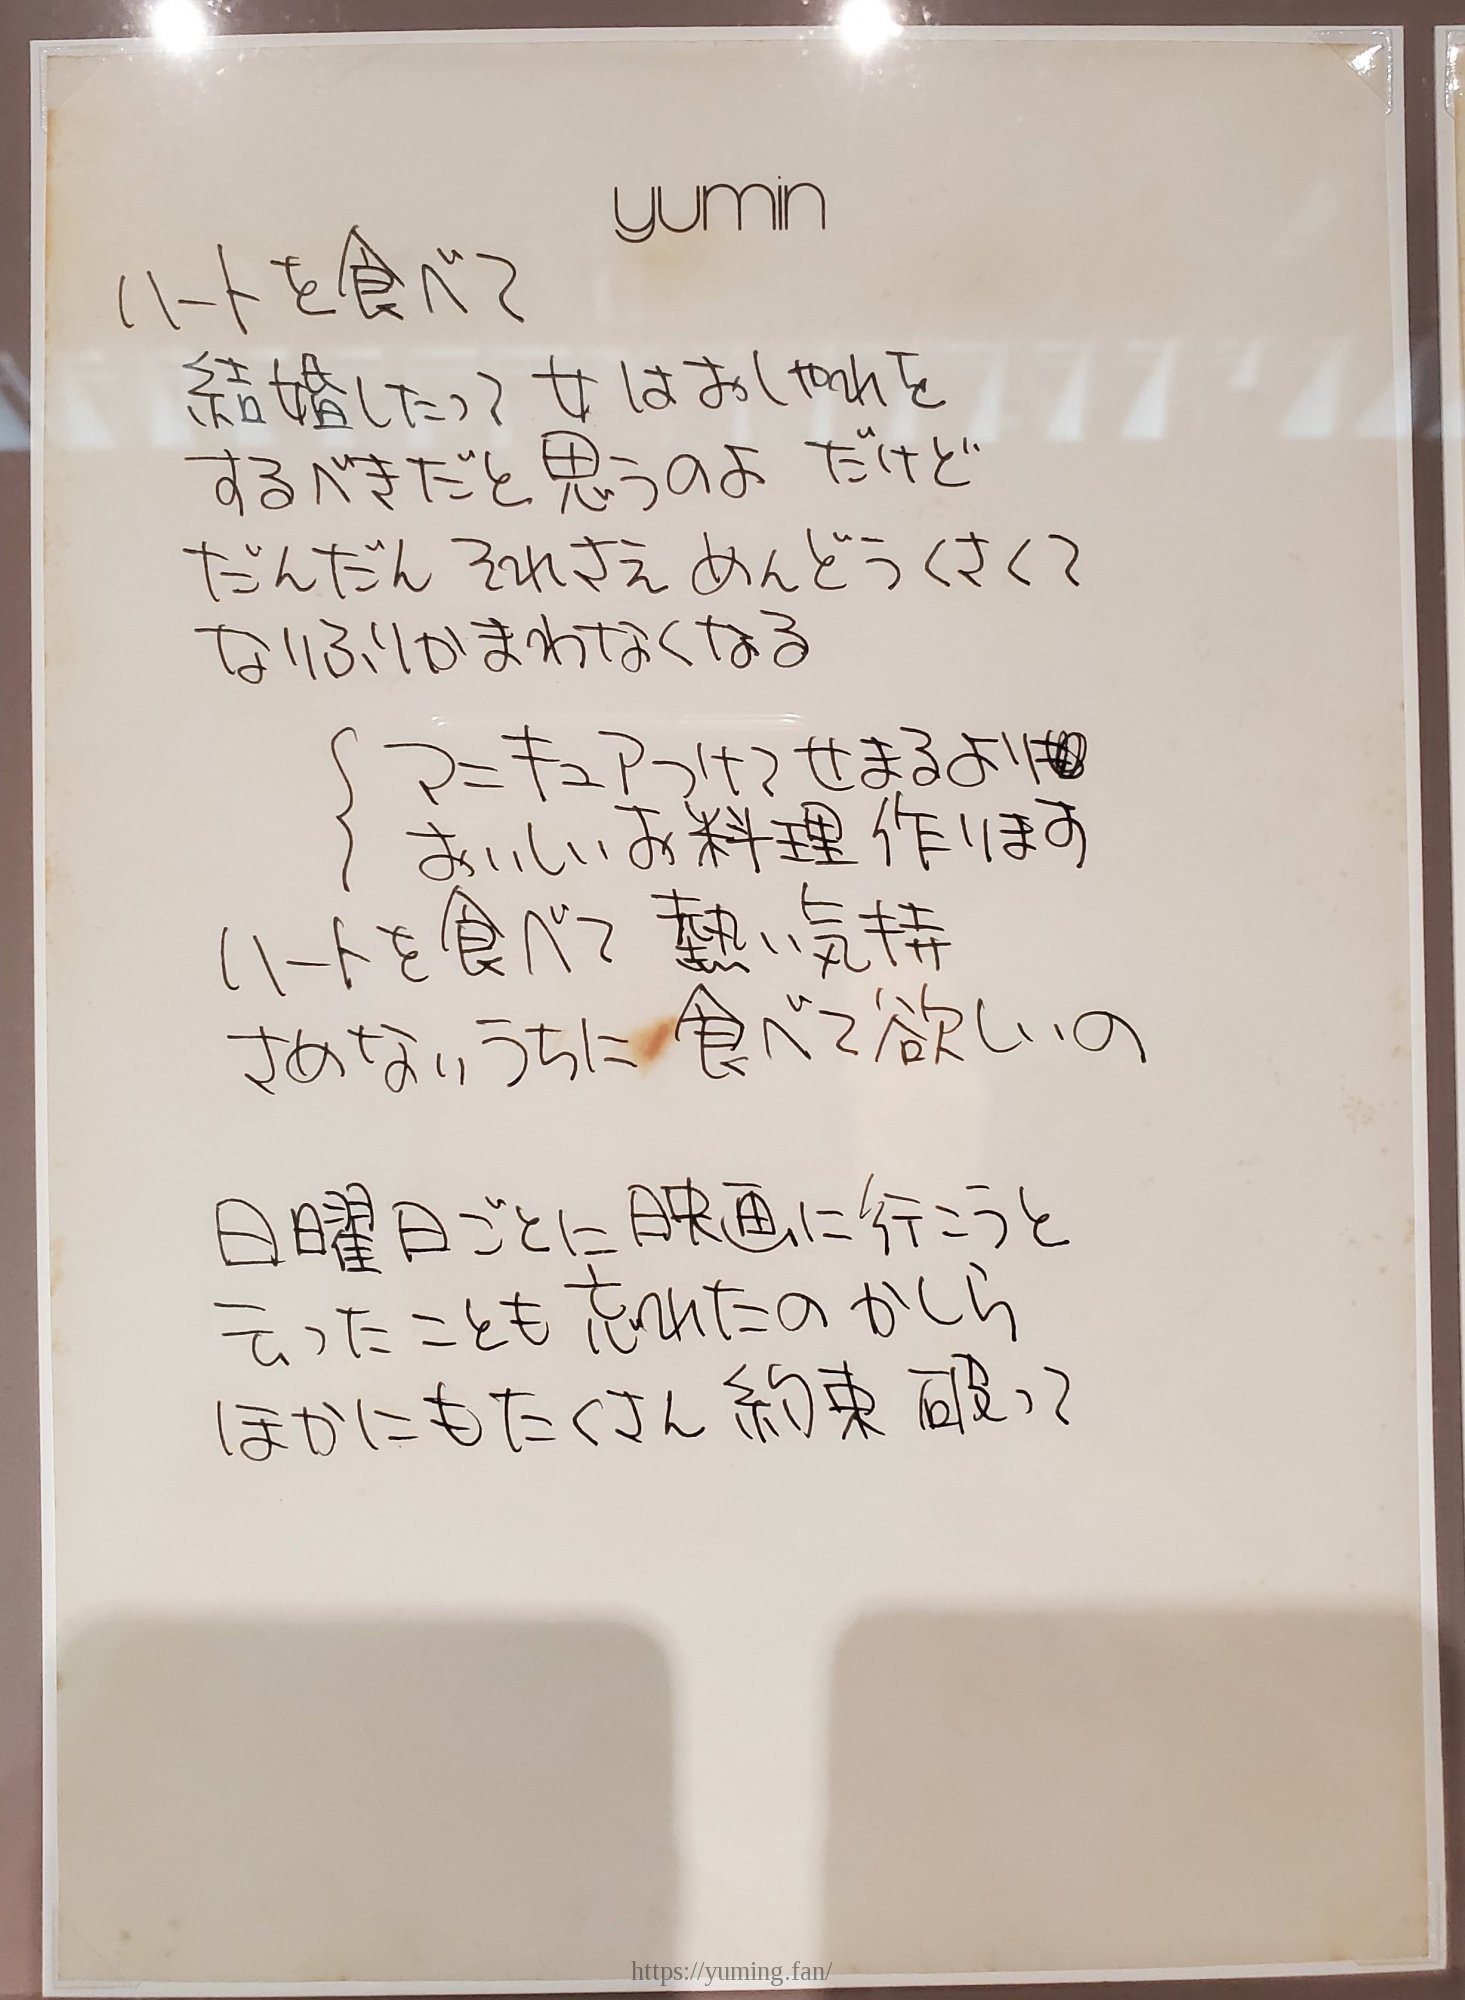 yumin
ハートを食べて
結婚したって 女はおしゃれを
するべきだと思うのよ だけど
だんだん それさえ めんどうくさくて
なりふりかまわなくなる
マニキュアつけて せまるより
おいしいお料理 作ります
ハートを食べて 熱い気持
さめないうちに 食べて欲しいの
日曜日ごとに映画に行こうと
云ったことも 忘れたの かしら
ほかにもたくさん 約束 破って
https://yuming.fan/